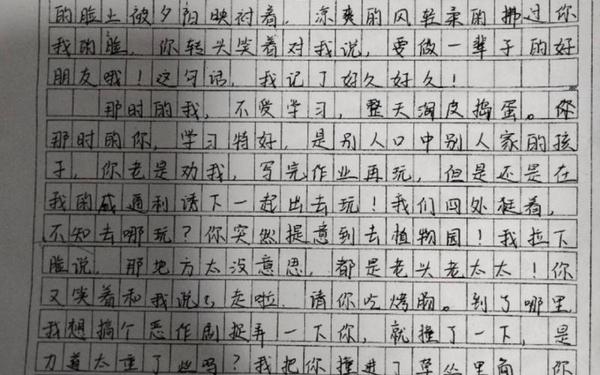 的脸上被夕阳映衬着，凉爽的风轻柔的拂过你
我的脸，你转头笑着对我说，要做一辈子的好
朋友哦！这句话，我记了好久好久！
那时的我，不爱学习，整天淘皮捣蛋。你
那时的你，学习特好，是别人口中别人家的孩
子，你老是劝我，写完作业再玩，但是还是在
我的威逼利诱下一起出去玩！我们四处逛着，
不知去哪玩？你突然提意到去植物园！我拉下
脸说，那地方太没意思，都是老头老太太！你
又笑着和我说，走啦，请你吃烤肠。到了哪里
我想搞个恶作剧捉弄一下你，就撞了一下，是
力道太重了些吗？我把你撞进了草丛里角，你